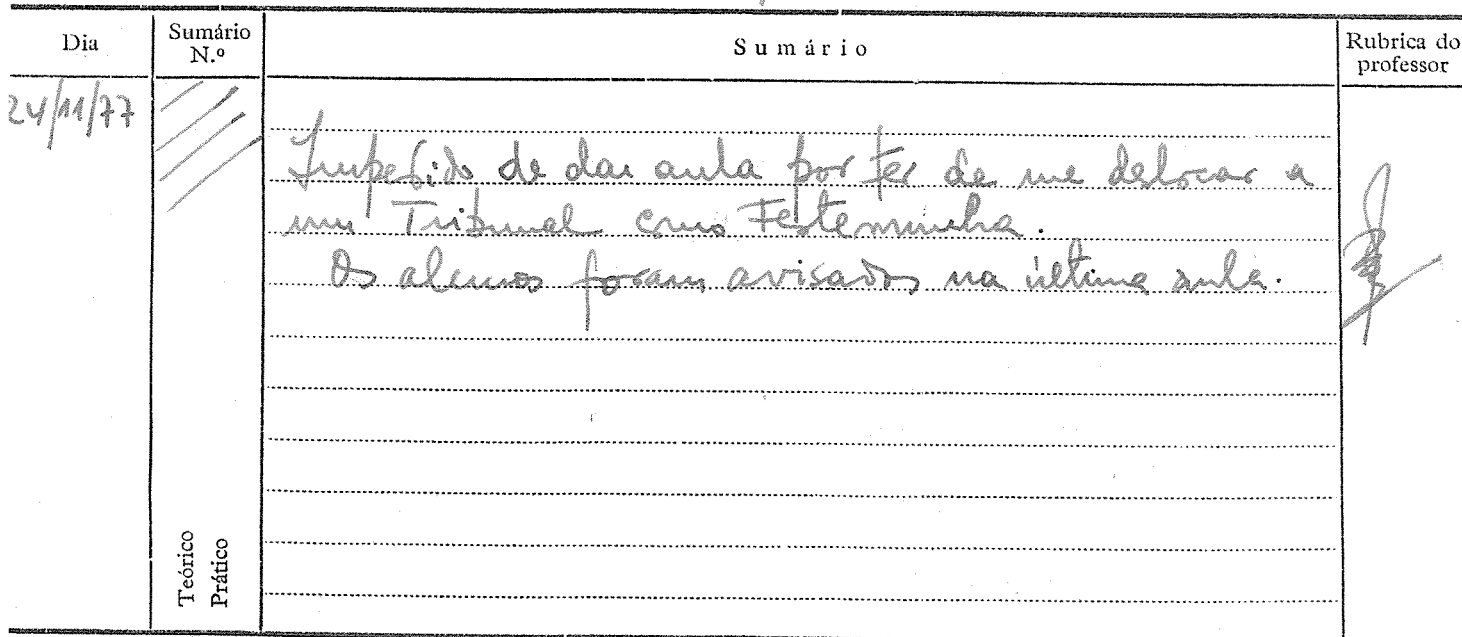 Dia
Sumário
N.º
Sumário
Rubrica do
professor
24/11/77
Impedido de dar aula por ter de me deslocar a
um Tribunal como Testemunha.
Os alunos foram avisados na última aula.
Teórico
Prático